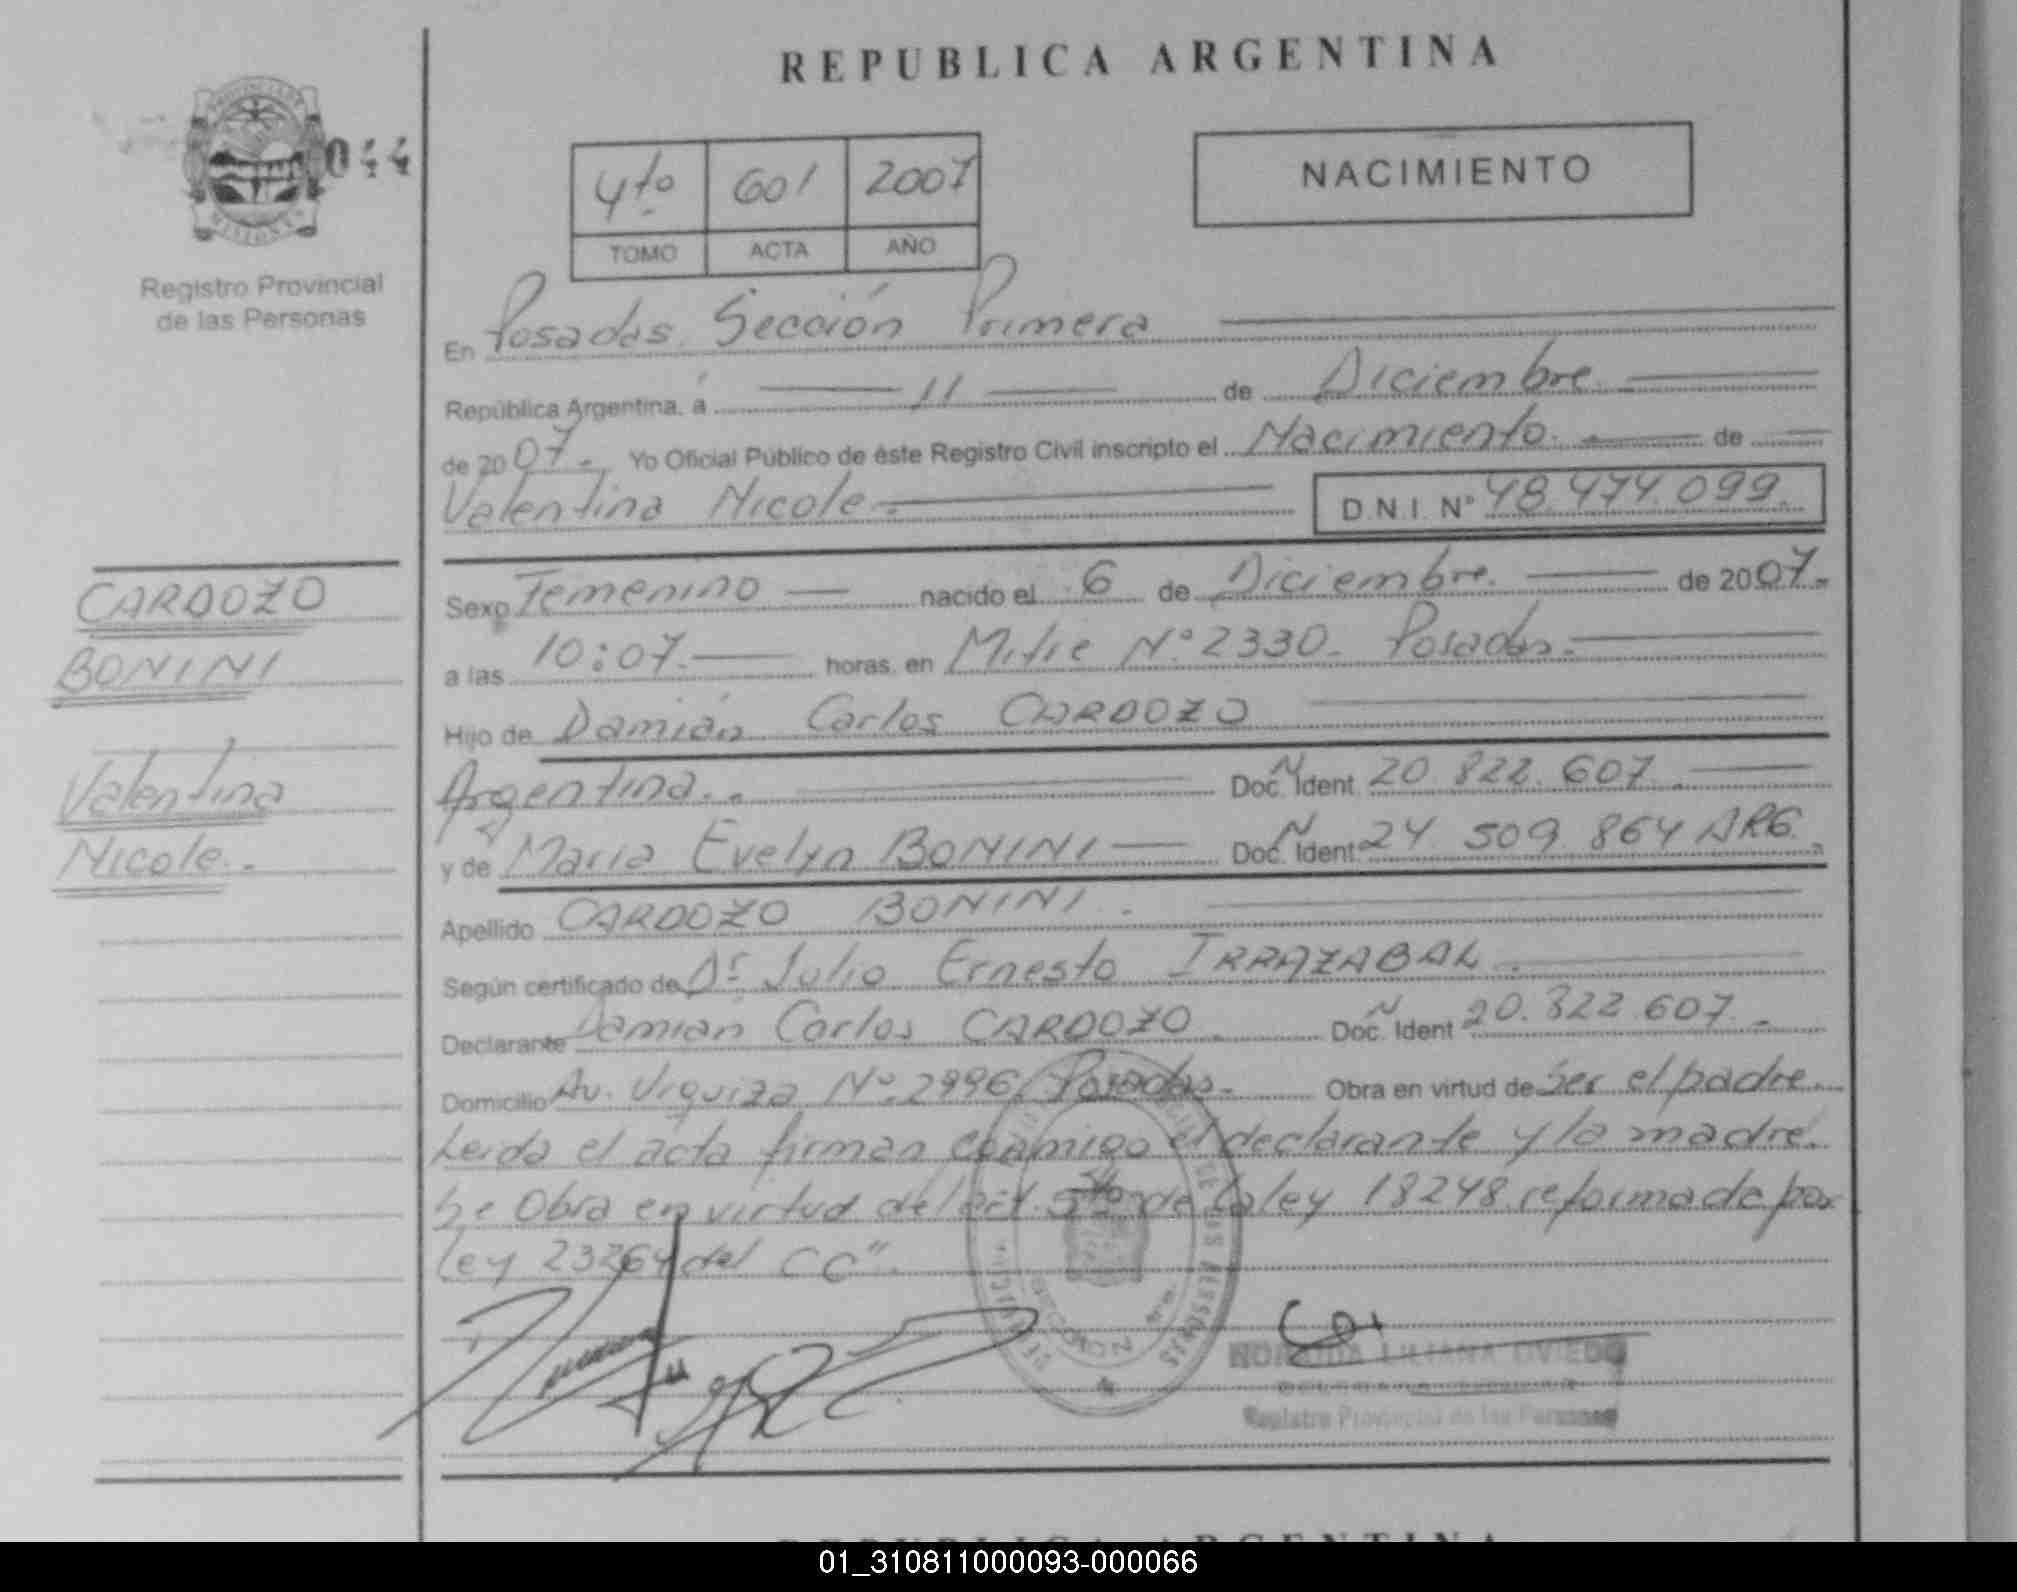 REPUBLICA ARGENTINA
PROVINCIA DE
MISIONES
044
Registro Provincial
de las Personas
4to 601 2007
TOMO ACTA AÑO
NACIMIENTO
En Posadas Sección Primera
República Argentina, á 11 de Diciembre
de 2007. Yo Oficial Público de éste Registro Civil inscripto el Nacimiento. de
Valentina Nicole. D.N.I. Nº 48.474.099.
CARDOZO
BONINI
Valentina
Nicole.
Sexo Femenino nacido el 6 de Diciembre. de 2007.
a las 10:07. horas, en Mitre Nº 2330. Posadas.
Hijo de Damián Carlos CARDOZO
Argentina. Doc. Ident. 20.822.607.
y de Maria Evelyn BONINI Doc. Ident. 24.509.864 ARG.
Apellido CARDOZO BONINI.
Según certificado de Dr. Julio Ernesto IRRAZABAL.
Declarante Damian Carlos CARDOZO Doc. Ident 20.822.607.
Domicilio Av. Urquiza Nº 2996. Posadas. Obra en virtud de Ser el padre.
Leida el acta firman conmigo el declarante y la madre.
Se Obra en virtud del art. 5to de la ley 18248 reformada por
ley 23264 del CC".
LILIANA OVIEDO
Registro Provincial de las Personas
REPUBLICA ARGENTINA
01_310811000093-000066